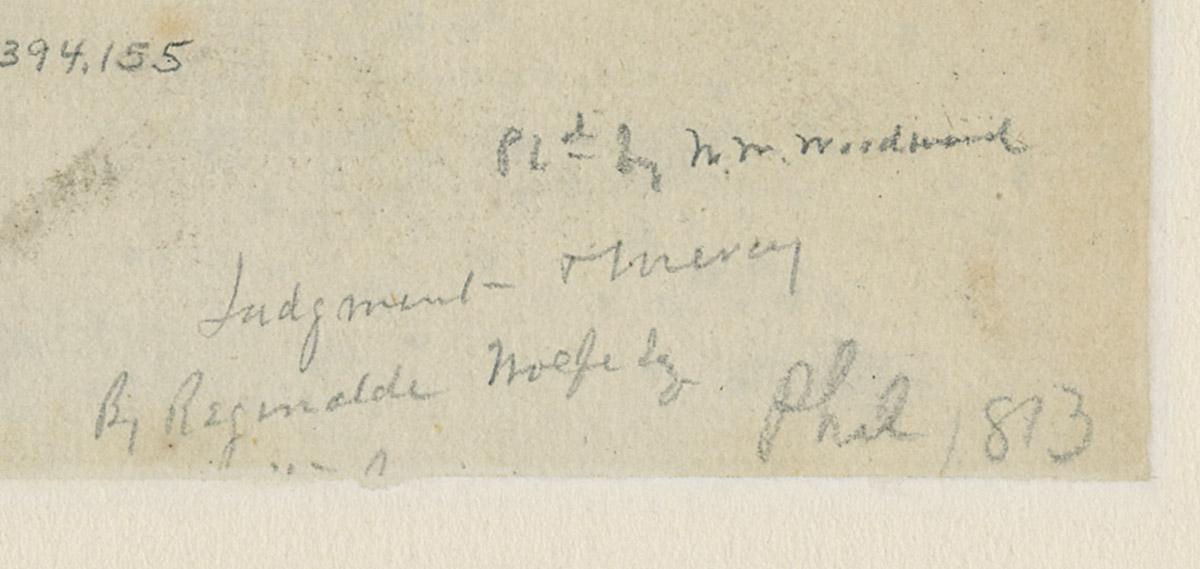 394,155
Pld by W. W. Woodward
Judgment & Mercy
By Reginalde Wolfe Esq
Phil 1813